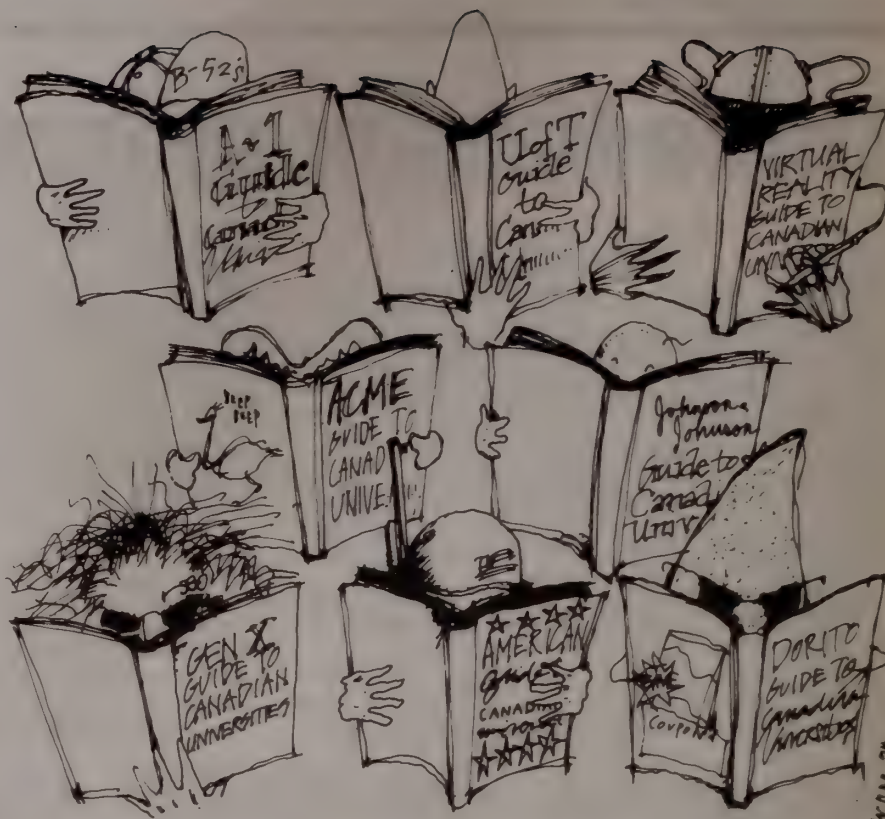 B-52's
A-1
Guide
to
UofT
Guide
to
Can
VIRTUAL
REALITY
GUIDE TO
CANADIAN
BEEP
BEEP
ACME
GUIDE TO
CANAD
UNIVE
Johnson &
Johnson
Guide to
Canad
Univ
GEN X
GUIDE TO
CANADIAN
UNIVERSITIES
AMERICAN
Guide
CANADIAN
COUPON
DORITO
GUIDE TO
Canadian
Universities